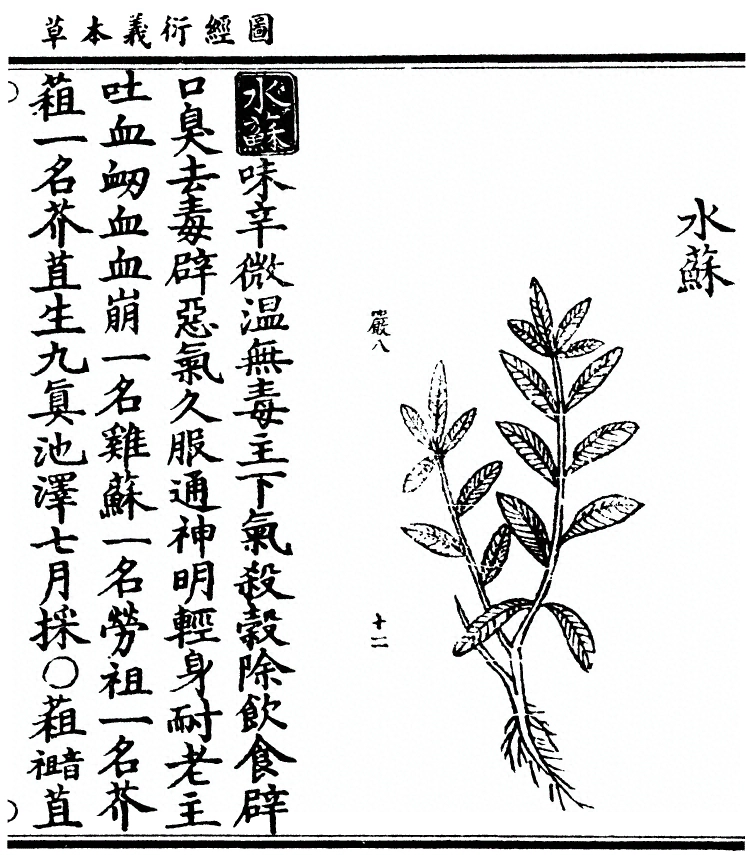 圖經衍義本草
水蘇
嚴八
十二
水蘇味辛微溫無毒主下氣殺穀除飲食辟
口臭去毒辟惡氣久服通神明輕身耐老主
吐血衂血血崩一名雞蘇一名勞祖一名芥
蒩一名芥苴生九眞池澤七月採○蒩音祖苴